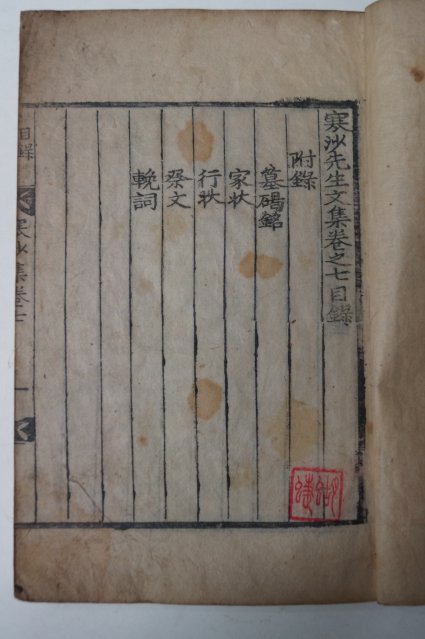 寒沙先生文集卷之七目錄
附錄
墓碣銘
家狀
行狀
祭文
輓詞
目錄
寒沙集卷七